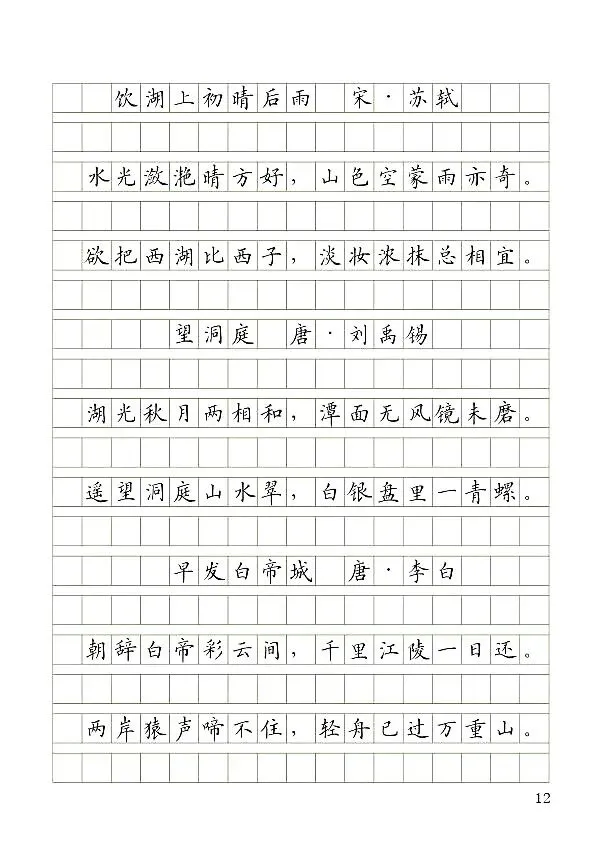 饮湖上初晴后雨 宋·苏轼
水光潋滟晴方好，山色空蒙雨亦奇。
欲把西湖比西子，淡妆浓抹总相宜。
望洞庭 唐·刘禹锡
湖光秋月两相和，潭面无风镜未磨。
遥望洞庭山水翠，白银盘里一青螺。
早发白帝城 唐·李白
朝辞白帝彩云间，千里江陵一日还。
两岸猿声啼不住，轻舟已过万重山。
12